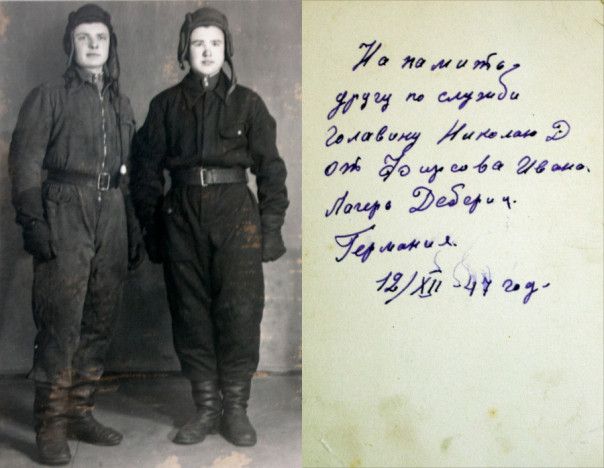 На память
другу по службы
Головину Николаю Д
от Фирсова Ивана.
Лагерь Дебериц.
Германия.
12/XII-47 год.